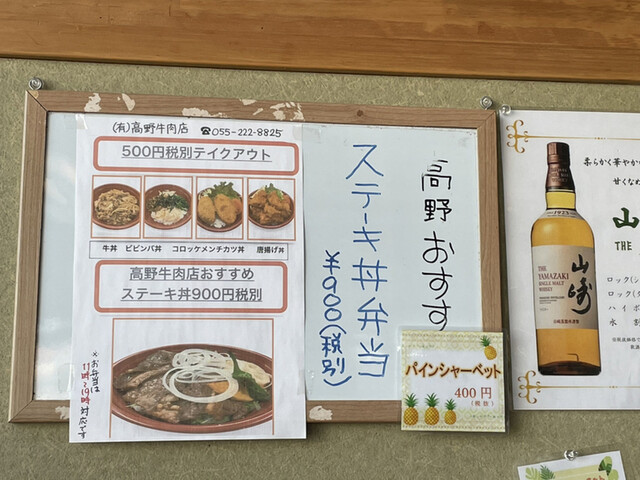 (有)高野牛肉店 ☎055-222-8825
500円税別テイクアウト
牛丼 ビビンバ丼 コロッケメンチカツ丼 唐揚げ丼
高野牛肉店おすすめ
ステーキ丼900円税別
※お弁当は
11時〜19時対応です
高野おすす
ステーキ丼弁当
¥900(税別)
パインシャーベット
400円
(税抜)
柔らかく華やか
甘くなめ
山
THE
THE
YAMAZAKI
SINGLE MALT
WHISKY
山崎
ロック(シ
ロック(
ハイボ
水割